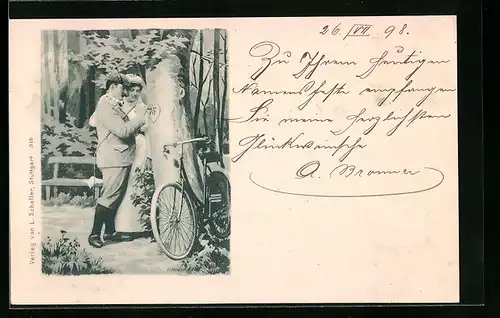 26. VII 98.
Zu Ihrem heutigen
Namensfeste empfangen
Sie meine herzlichsten
Glückwünsche
A. Bronner
Verlag von L. Schaller, Stuttgart. 316